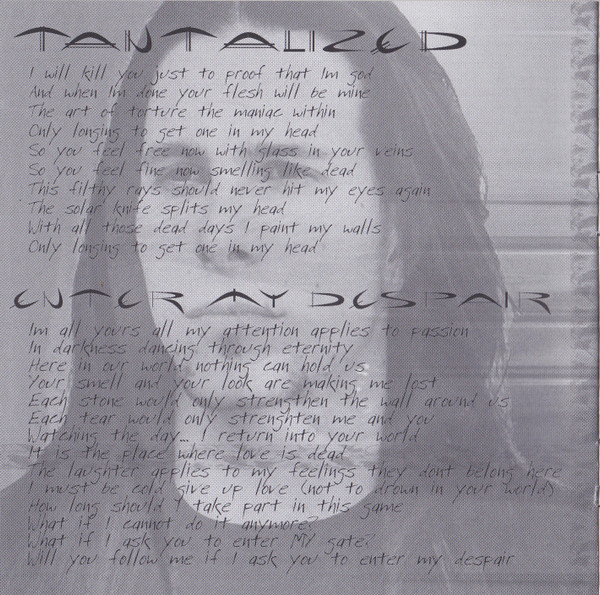 TANTALIZED
I will kill you just to proof that Im god
And when Im done your flesh will be mine
The art of torture the maniac within
Only longing to get one in my head
So you feel free now with glass in your veins
So you feel fine now smelling like dead
This filthy rays should never hit my eyes again
The solar knife splits my head
With all those dead days I paint my walls
Only longing to get one in my head
ENTER MY DESPAIR
Im all yours all my attention applies to passion
In darkness dancing through eternity
Here in our world nothing can hold us
Your smell and your look are making me lost
Each stone would only strengthen the wall around us
Each tear would only strenghten me and you
Watching the day... I return into your world
It is the place where love is dead
The laughter applies to my feelings they dont belong here
I must be cold give up love (not to drown in your world)
How long should I take part in this game
What if I cannot do it anymore?
What if I ask you to enter MY gate?
Will you follow me if I ask you to enter my despair